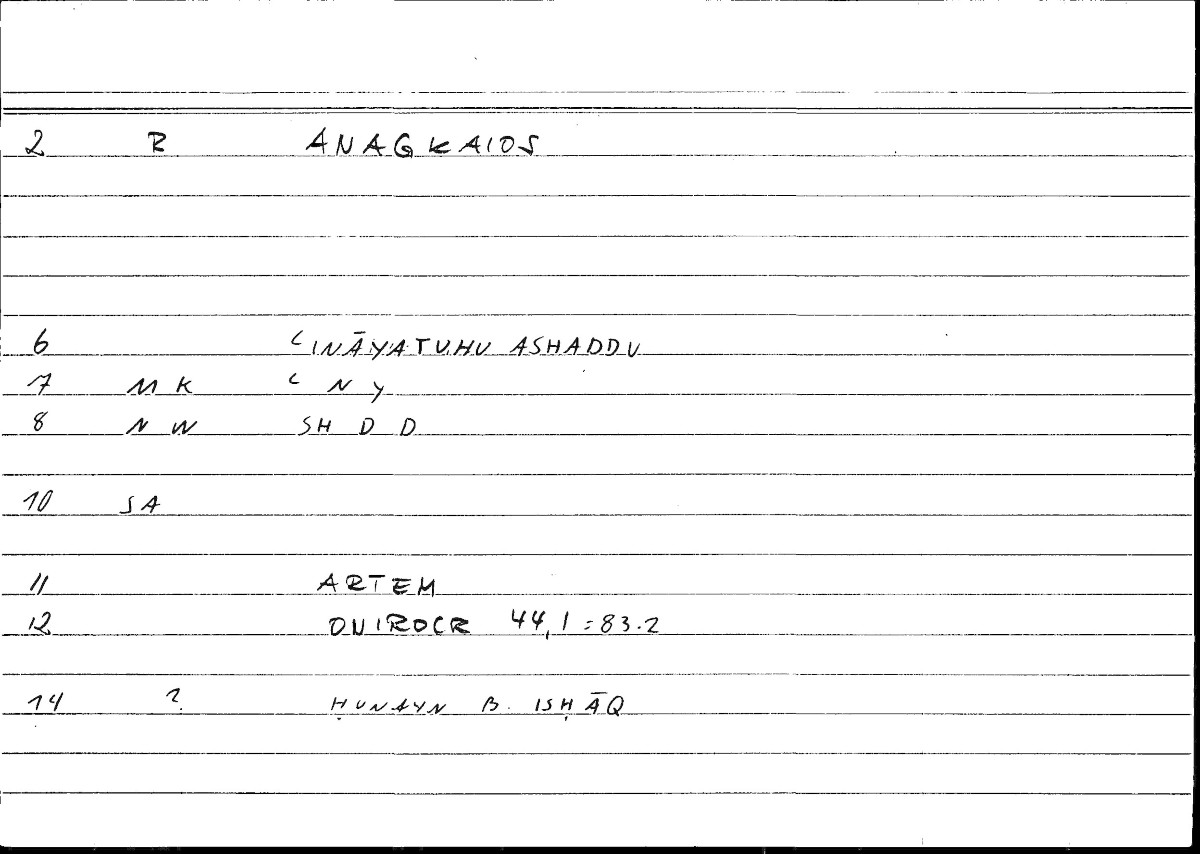 2 R ANAGKAIOS
6 ʿINĀYATUHU ASHADDU
7 MK ʿ N Y
8 NW SH D D
10 SA
11 ARTEM
12 ONIROCR 44,1 = 83.2
14 ? ḤUNAYN B. ISḤĀQ